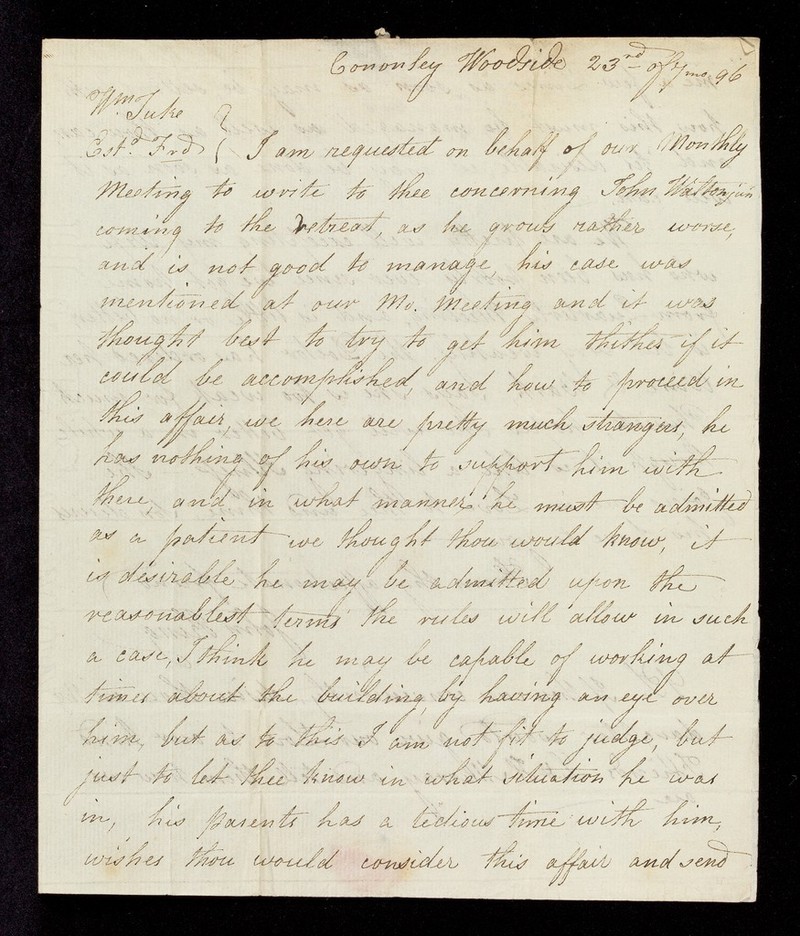 Cononley Woodside 23rd of 7mo 96
Wm Tuke
Estd Frd } I am requested on behalf of our Monthly
Meeting to write to thee concerning John Walton jun
coming to the retreat, as he grows rather worse,
and is not good to manage, his case was
mentioned at our Mo. Meeting and it was
thought best to try to get him thither if it
could be accomplished, and how to proceed in
this affair, we here are pretty much strangers, he
has nothing of his own to support him with
there, and in what manner he must be admitted
as a patient we thought thou would know, it
is desirable he may be admitted upon the
reasonablest terms the rules will allow in such
a case, I think he may be capable of working at
times about the building, by having an eye over
him, but as to this I am not fit to judge, but
just to let thee know in what situation he was
in, his parents has a tedious time with him,
wishes thou would consider this affair and send